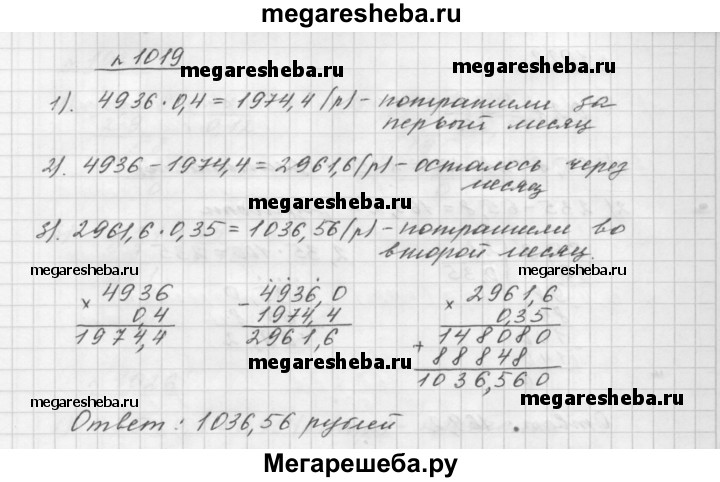 megaresheba.ru
№ 1019
megaresheba.ru megaresheba.ru
1). 4936 · 0,4 = 1974,4 (р) - потратили за
первый месяц
2). 4936 - 1974,4 = 2961,6 (р) - осталось через
месяц
megaresheba.ru
3). 2961,6 · 0,35 = 1036,56 (р) - потратили во
второй месяц.
megaresheba.ru megaresheba.ru
× 4936 - 4936,0 × 2961,6
0,4 1974,4 0,35
1974,4 2961,6 148080
+ 88848
megaresheba.ru
1036,560
megaresheba.ru megaresheba.ru
Ответ: 1036,56 рублей
Мегарешеба.ру